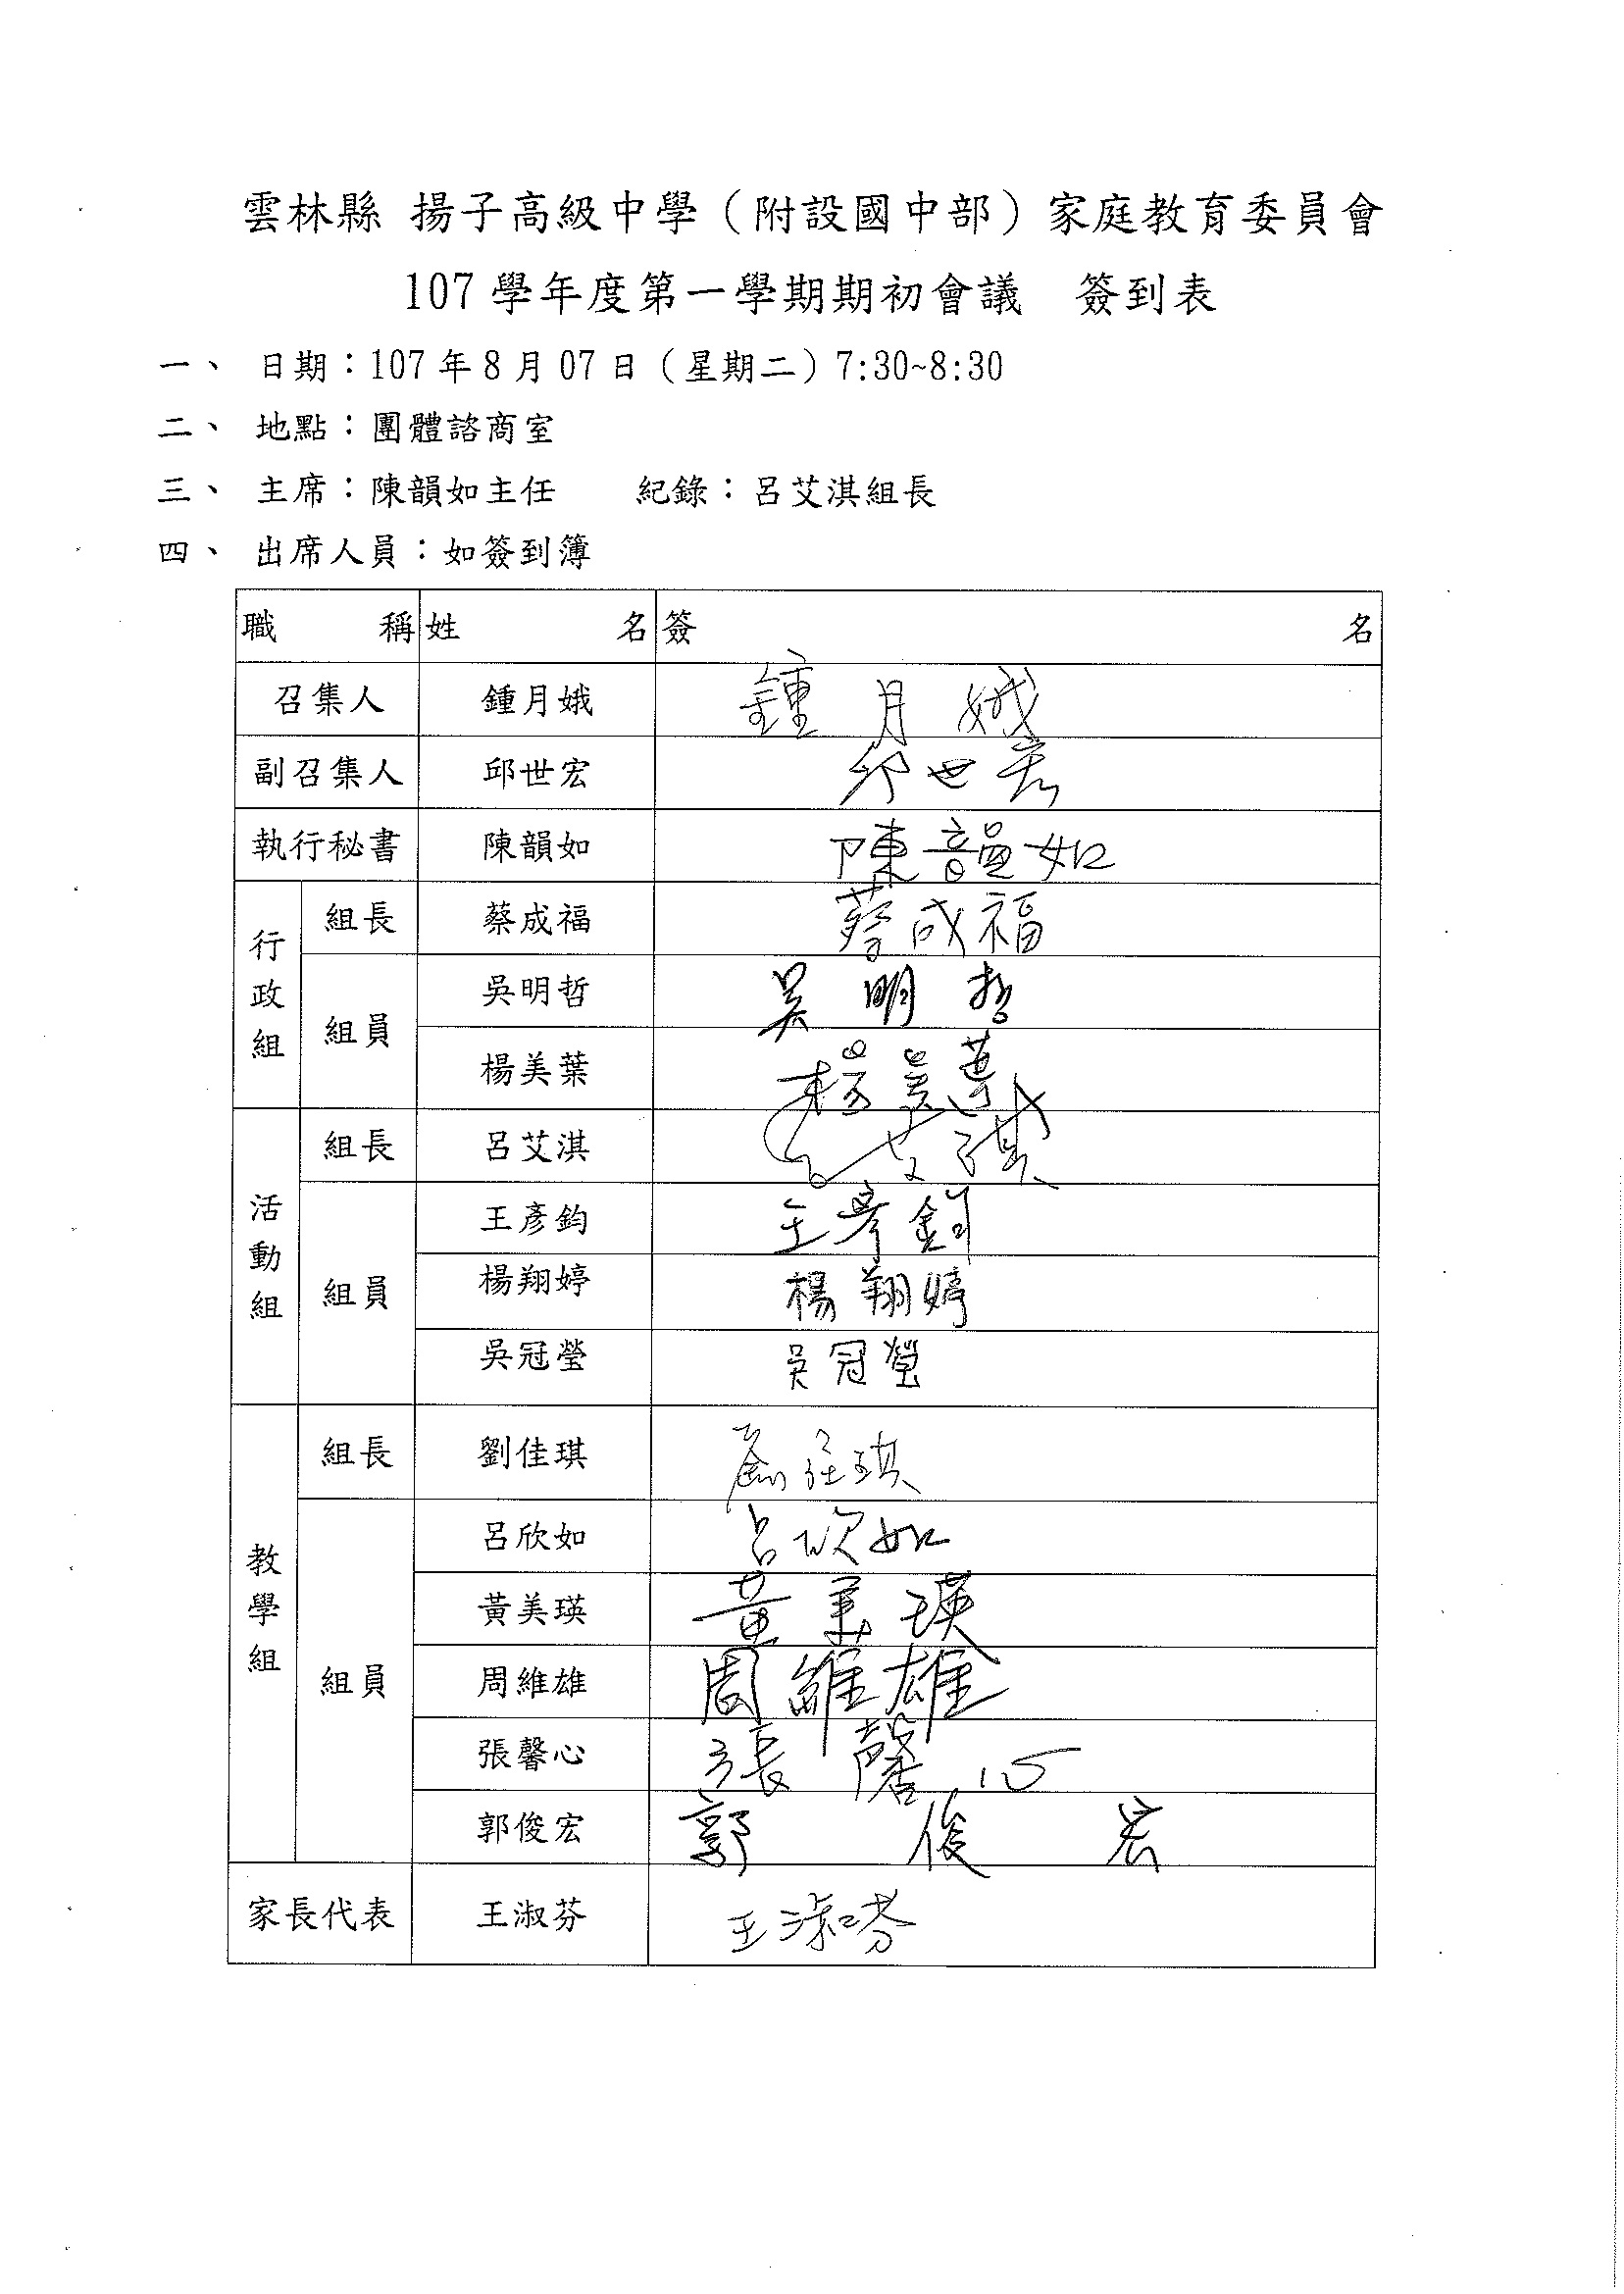 雲林縣 揚子高級中學（附設國中部）家庭教育委員會
107 學年度第一學期期初會議 簽到表
一、 日期：107 年 8 月 07 日（星期二）7:30~8:30
二、 地點：團體諮商室
三、 主席：陳韻如主任 紀錄：呂艾淇組長
四、 出席人員：如簽到簿
職 稱 姓 名 簽 名
召集人 鍾月娥 鍾月娥
副召集人 邱世宏 邱世宏
執行秘書 陳韻如 陳韻如
行政組 組長 蔡成福 蔡成福
組員 吳明哲 吳明哲
楊美葉 楊美葉
活動組 組長 呂艾淇 呂艾淇
組員 王彥鈞 王彥鈞
楊翔婷 楊翔婷
吳冠瑩 吳冠瑩
教學組 組長 劉佳琪 劉佳琪
組員 呂欣如 呂欣如
黃美瑛 黃美瑛
周維雄 周維雄
張馨心 張馨心
郭俊宏 郭俊宏
家長代表 王淑芬 王淑芬